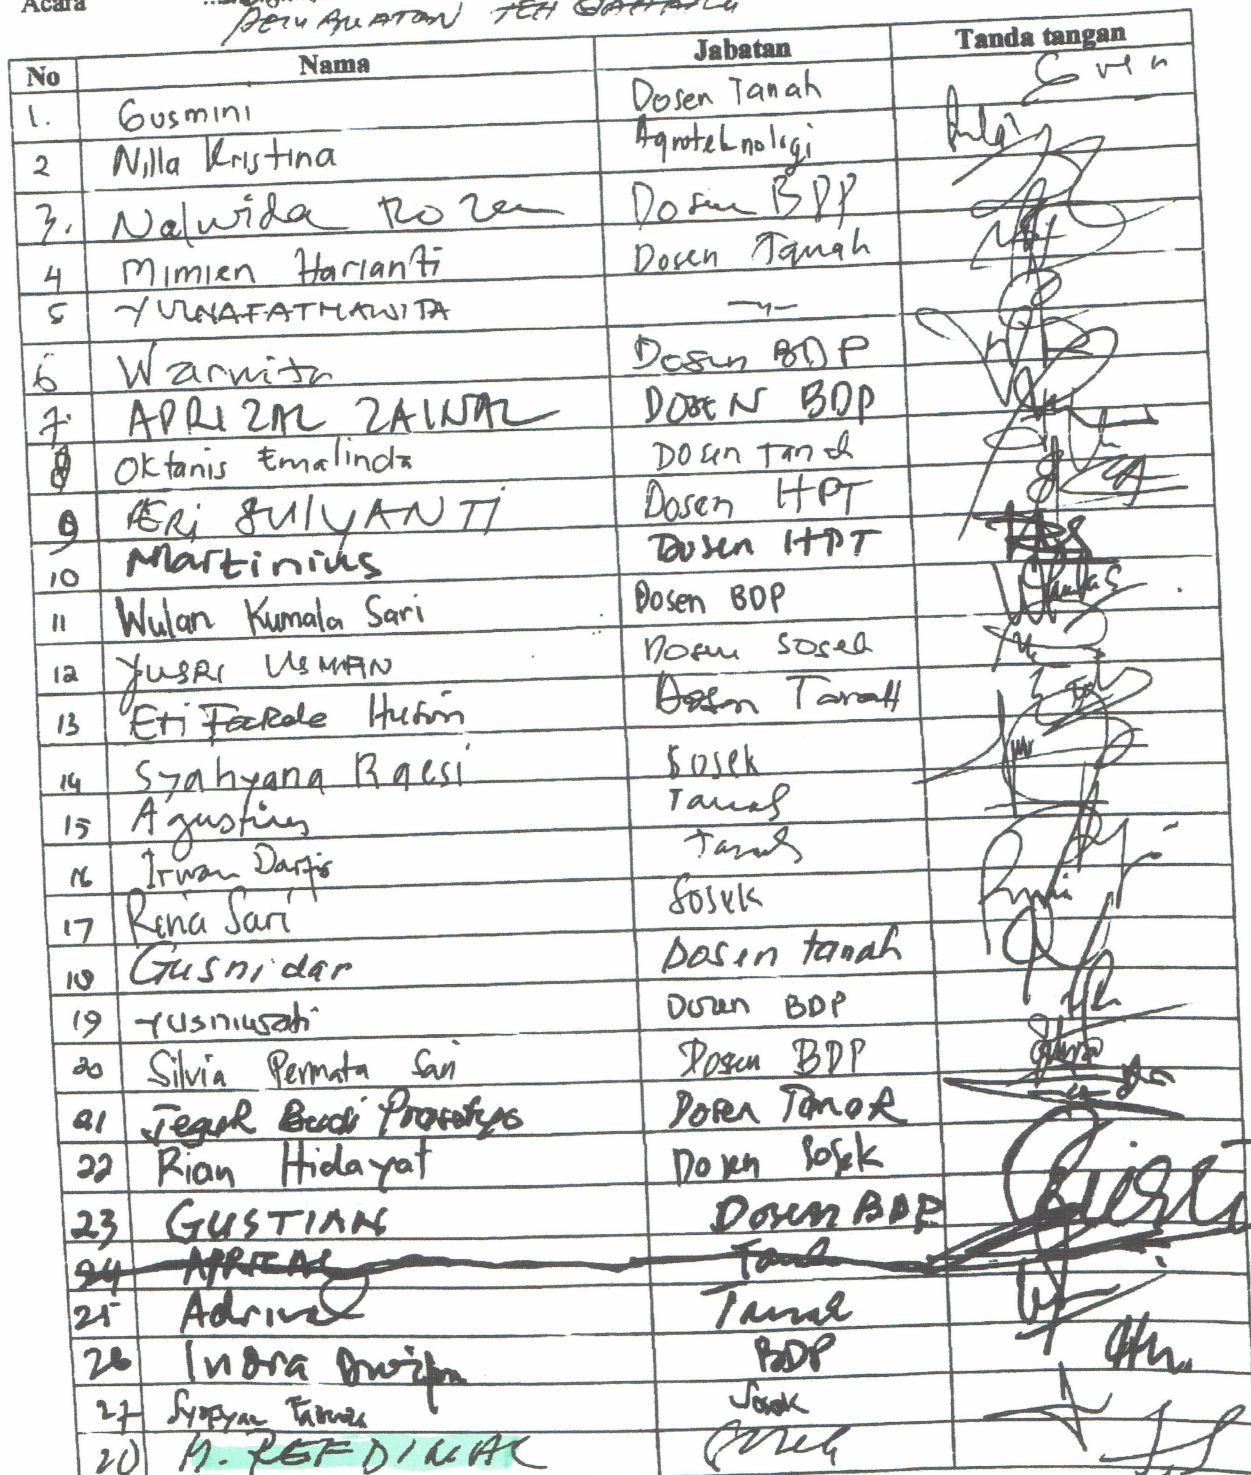 Acara
PEMBUATAN TEH GAHARU
No Nama Jabatan Tanda tangan
1. Gusmini Dosen Tanah
2 Nilla Kristina Agroteknologi
3. Nalwida Rozen Dosen BDP
4 Mimien Harianti Dosen Tanah
5 YULNAFATMAWITA —〃—
6 Warnita Dosen BDP
7. APRIZAL ZAINAL DOSEN BDP
8 Oktanis Emalinda Dosen Tanah
9 Dosen HPT
10 Martinius Dosen HPT
11 Wulan Kumala Sari Dosen BDP
12 YUSRI USMAN Dosen Sosek
13 Eti Farda Husin Dosen Tanah
14 Syahyana Raesi Sosek
15 Agustian Tanah
16 Irwan Darfis Tanah
17 Rina Sari Sosek
18 Gusnidar Dosen tanah
19 Yusniwati Dosen BDP
20 Silvia Permata Sari Dosen BDP
21 Teguh Budi Prasetyo Dosen Tanah
22 Rian Hidayat Dosen Sosek
23 GUSTIAN Dosen BDP
24 APRIZAL Tanah
25 Adrinal Tanah
26 Indra Dwipa BDP
27 Sosek
28 M. REFDINAL